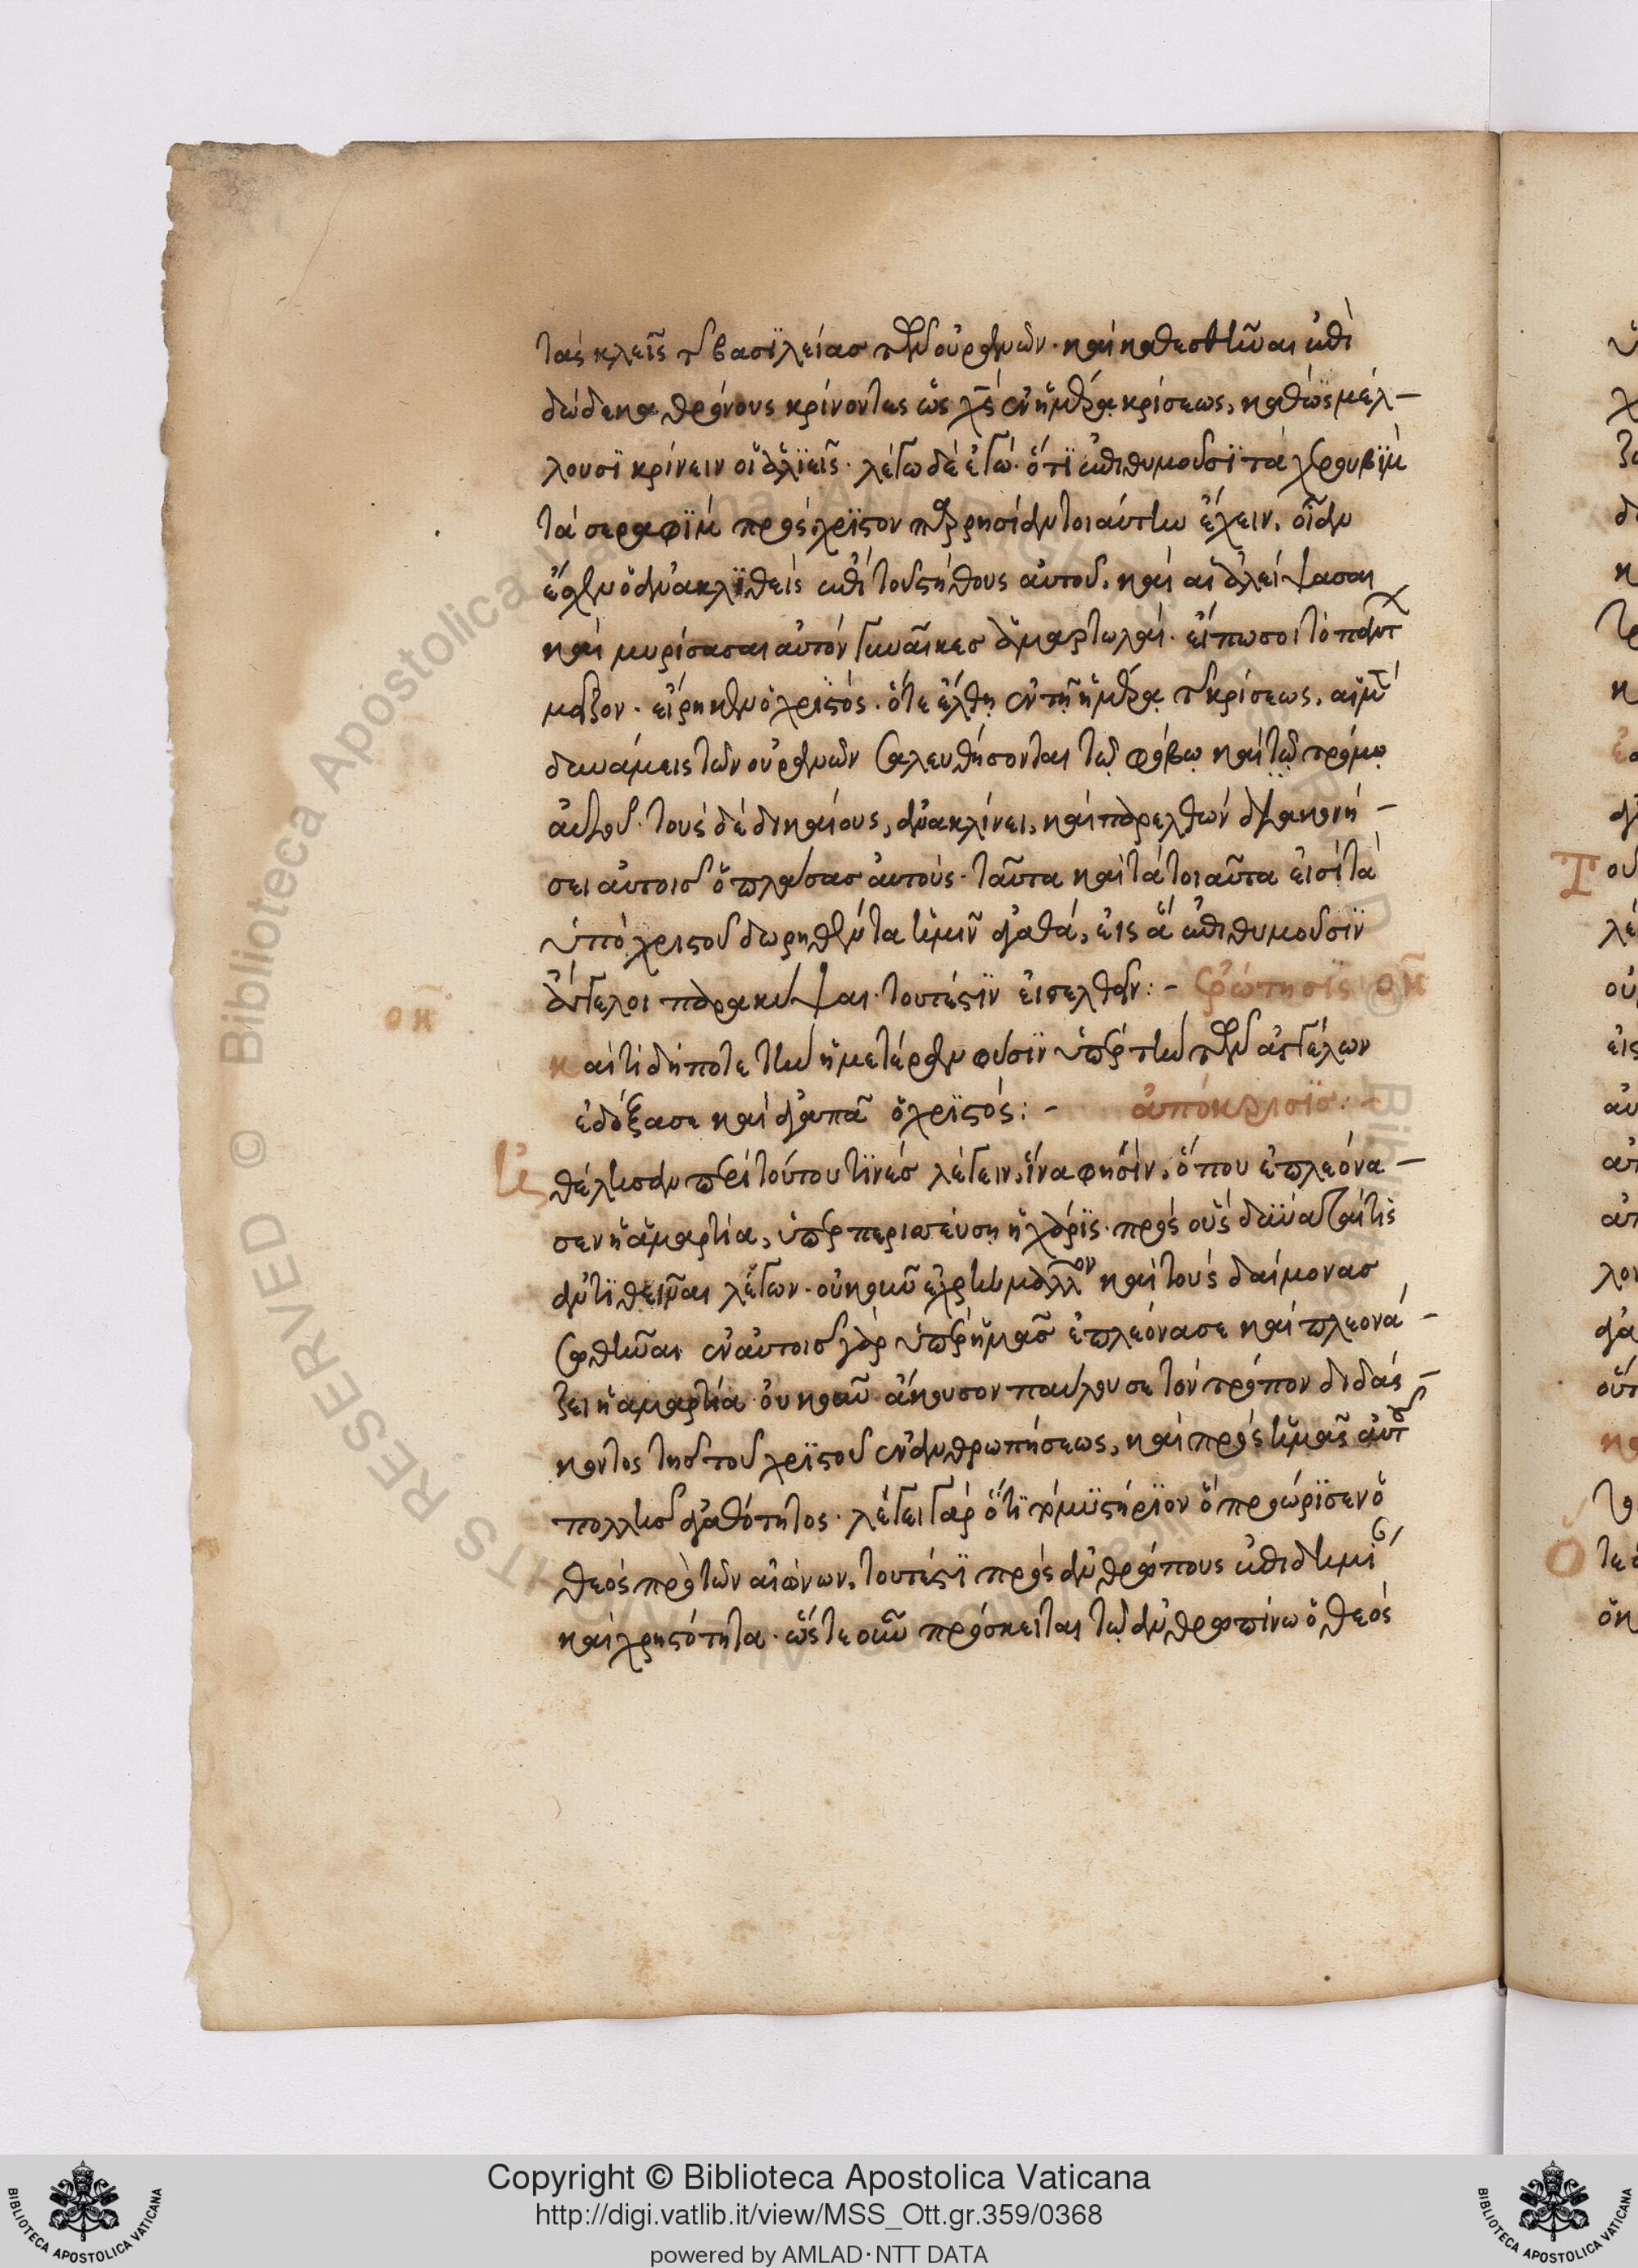 τὰς κλεῖς τῆς βασϊλείασ τῶν οὐρανῶν· καὶ καθεσθῆναι ἐπὶ
δώδεκα θρόνους κρίνοντας ὡς χς ἐν ἡμέρα κρίσεως, καθὼς μέλ-
λουσϊ κρίνειν οἱ ἁλϊεῖς· λέγω δὲ ἐγώ· ὅτϊ ἐπιθυμοῦσϊ τὰ χερουβὶμ
τὰ σεραφὶμ πρὸς χρϊστὸν παρρησίαν τοιαύτην ἔχειν, οἵαν
ἔσχεν ὁ ἀνακλϊθεὶς ἐπὶ τοῦ στήθους αὐτοῦ, καὶ αἱ ἀλείψασαι
καὶ μυρίσασαι αὐτὸν γυναῖκεσ ἁμαρτωλαί· εἴπω σοι τὸ παντ
μεῖζον· εἴρηκεν ὁ χρϊστός· ὅτε ἔλθη ἐν τῆ ἡμέρα τῆς κρίσεως, αἱ μὲν
δυνάμεις τῶν οὐρανῶν σαλευθήσονται τῶ φόβω καὶ τῶ τρόμω
αὐτοῦ· τοὺς δὲ δικαίους, ἀνακλίνει, καὶ παρελθὼν διακονή-
σει αὐτοισ ὁ πλάσας αὐτούς· ταῦτα καὶ τὰ τοιαῦτα εἰσὶ τὰ
ὑπὸ χριστοῦ δωρηθέντα ἡμῖν ἀγαθά, εἰς ἃ ἐπιθυμοῦσϊν
ἄγγελοι παρακύψαι· τουτέστϊν εἰσελθεῖν:- ἐρώτησϊς οκ
οκ
καὶ τί δήποτε τὴν ἡμετέραν φύσϊν ὑπὲρ τὴν τῶν ἀγγέλων
ἐδόξασε καὶ ἀγαπᾶ ὁ χρϊστός:- ἀπόκρισϊς:-
ἠθέλησαν περὶ τούτου τϊνὲσ λέγειν, ἵνα φησὶν, ὅπου ἐπλεόνα-
σεν ἡ ἁμαρτία, ὑπερπερισσεύση ἡ χάρϊς· πρὸς οὓς δύναται τίς
ἀντϊθεῖναι λέγων· οὐκοῦν ἐχρῆν μᾶλλον καὶ τοὺς δαίμονασ
σωθῆναι ἐν αὐτοισ γὰρ ὑπὲρ ἡμᾶσ ἐπλεόνασε καὶ πλεονά-
ζει ἡ ἁμαρτία· οὐκοῦν ἄκουσον παύλου σε τὸν τρόπον διδάσ-
κοντος τησ τοῦ χρϊστοῦ ἐνανθρωπήσεως, καὶ πρὸς ἡμᾶς αὐτοῦ
πολλησ ἀγαθότητος· λέγει γὰρ ὅτϊ τὸ μϋστήρϊον ὃ προώρϊσεν ὁ
θεὸς πρὸ τῶν αἰώνων, τουτέστϊ πρὸς ἀνθρώπους ἐπιδημί
καὶ χρηστότητα· ὥστε οὖν πρόσκειται τῶ ἀνθρωπίνω ὁ θεὸς
Copyright © Biblioteca Apostolica Vaticana
http://digi.vatlib.it/view/MSS_Ott.gr.359/0368
powered by AMLAD·NTT DATA